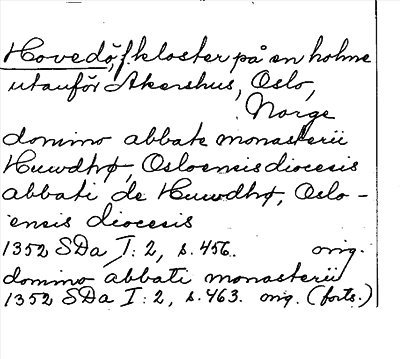 Hovedö, f. kloster på en holme
utanför Akershus, Oslo,
Norge
domino abbate monasterii
Huwdhø, Osloensis diocesis
abbati de Huwdhø, Oslo-
ensis diocesis
1352 SDa I: 2, s. 456. orig.
domino abbati monasterii
1352 SDa I: 2, s. 463. orig. (forts.)